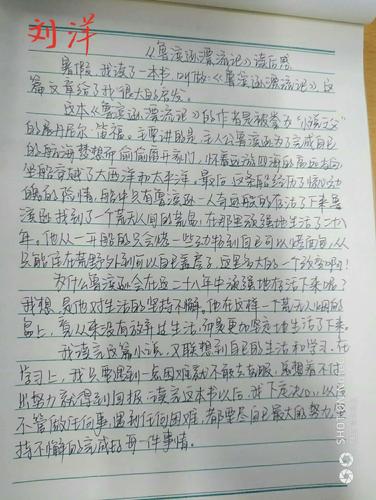 刘洋
《鲁滨逊漂流记》读后感
暑假,我读了一本书,叫做《鲁滨逊漂流记》,这
篇文章给了我很大的启发。
这本《鲁滨逊漂流记》的作者是被拳为"小说之父"
的丹尼尔·笛福。主要讲的是:主人公鲁滨逊为了完成自己
的航海梦想而偷偷离开家门,怀着远游四海的高远志向,
坐船穿越了大西洋和太平洋。最后,这条船经历了惊心动
魄的险情,船中只有鲁滨逊一人奇迹般的存活了下来。鲁
滨逊找到了一个荒无人间的荒岛,在那里顽强地生活了二十八
年。他从一开始的只会烤一些动物到自己可以烤面包,从
只能住在荒野外到可以自己盖房子,这是多大的一个改变啊!
为什么鲁滨逊会在这二十八年中顽强地存活下来呢?
我想,是他对生活的坚持不懈。他在这样一个荒无人烟的
岛上,看从来没有放弃过生活,而是更加坚定地生活了下来。
我读完这篇小说,又联想到自己的生活和学习。在
学习上,我只要遇到一点困难就不敢去克服,总想着不付
出努力就得到回报。读完这本书以后,我下定决心,以后
不管做任何事,遇到任何困难,都要尽自己最大的努力,坚
持不懈的完成好每一件事情。
SHOT ON